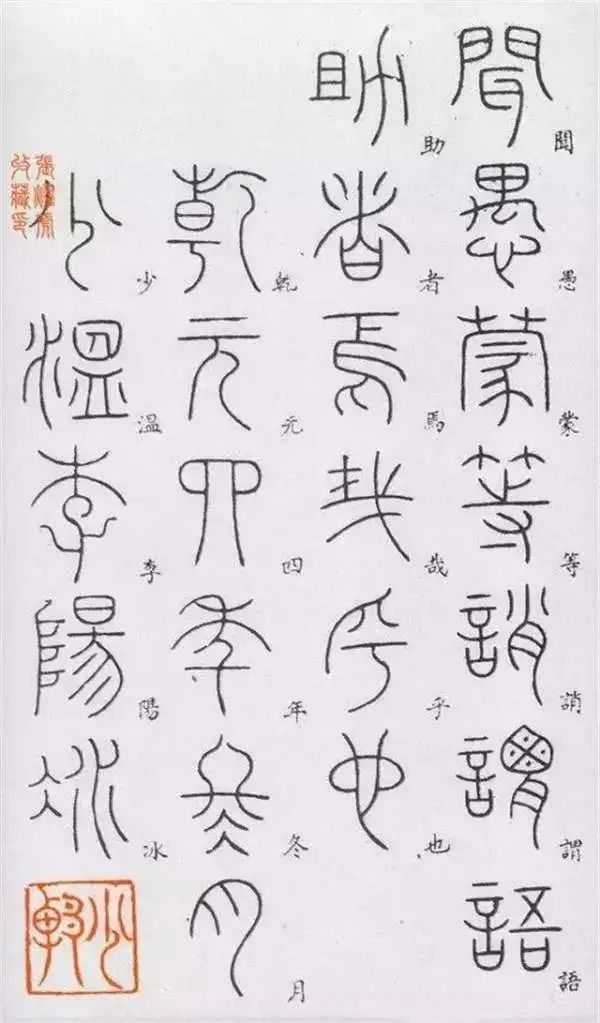 聞愚蒙等誚謂語
助者焉哉乎也
乾元四年冬月
少溫李陽冰